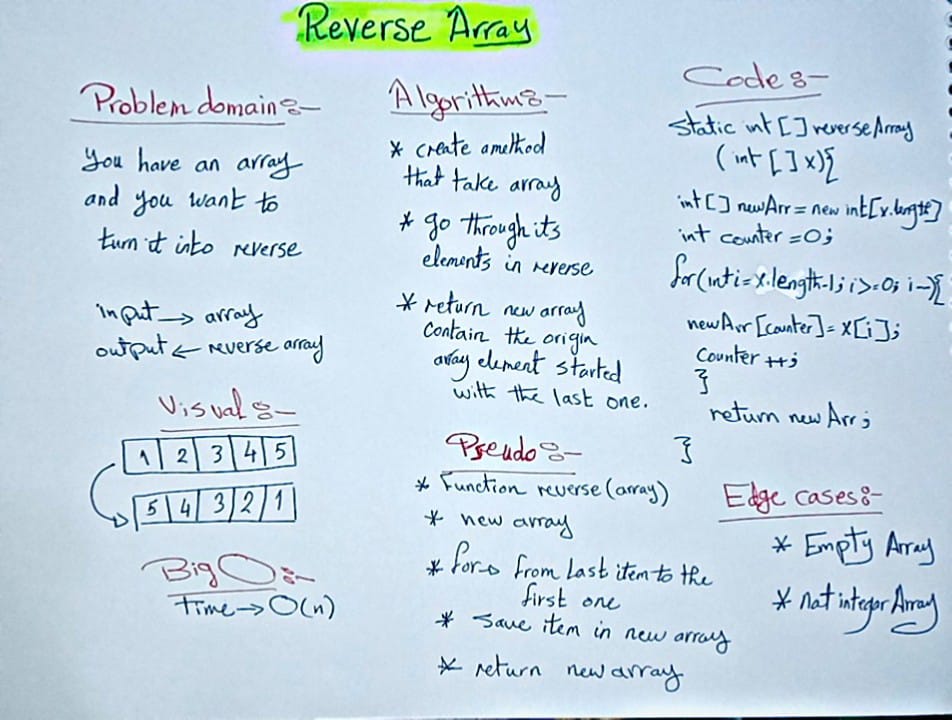 Reverse Array
Problem domain:-
You have an array
and you want to
turn it into reverse
input → array
output ← reverse array
Visual :-
1 2 3 4 5
5 4 3 2 1
Big O :-
time → O(n)
Algorithm :-
* create a method
that take array
* go through its
elements in reverse
* return new array
contain the origin
array element started
with the last one.
Pseudo :-
* Function reverse (array)
* new array
* for → from last item to the
first one
* Save item in new array
* return new array
Code :-
static int [] reverseArray
(int [] x){
int [] newArr = new int[x.length]
int counter = 0;
for(int i = x.length-1; i >= 0; i--){
newArr [counter] = x[i];
counter ++;
}
return newArr;
}
Edge cases :-
* Empty Array
* not integer Array